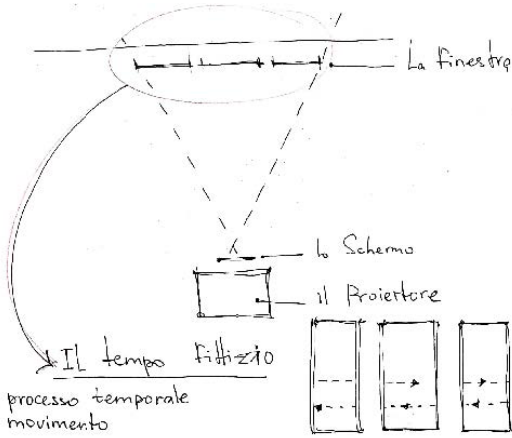 La finestra
lo Schermo
il Proiettore
IL tempo fittizio
processo temporale
movimento